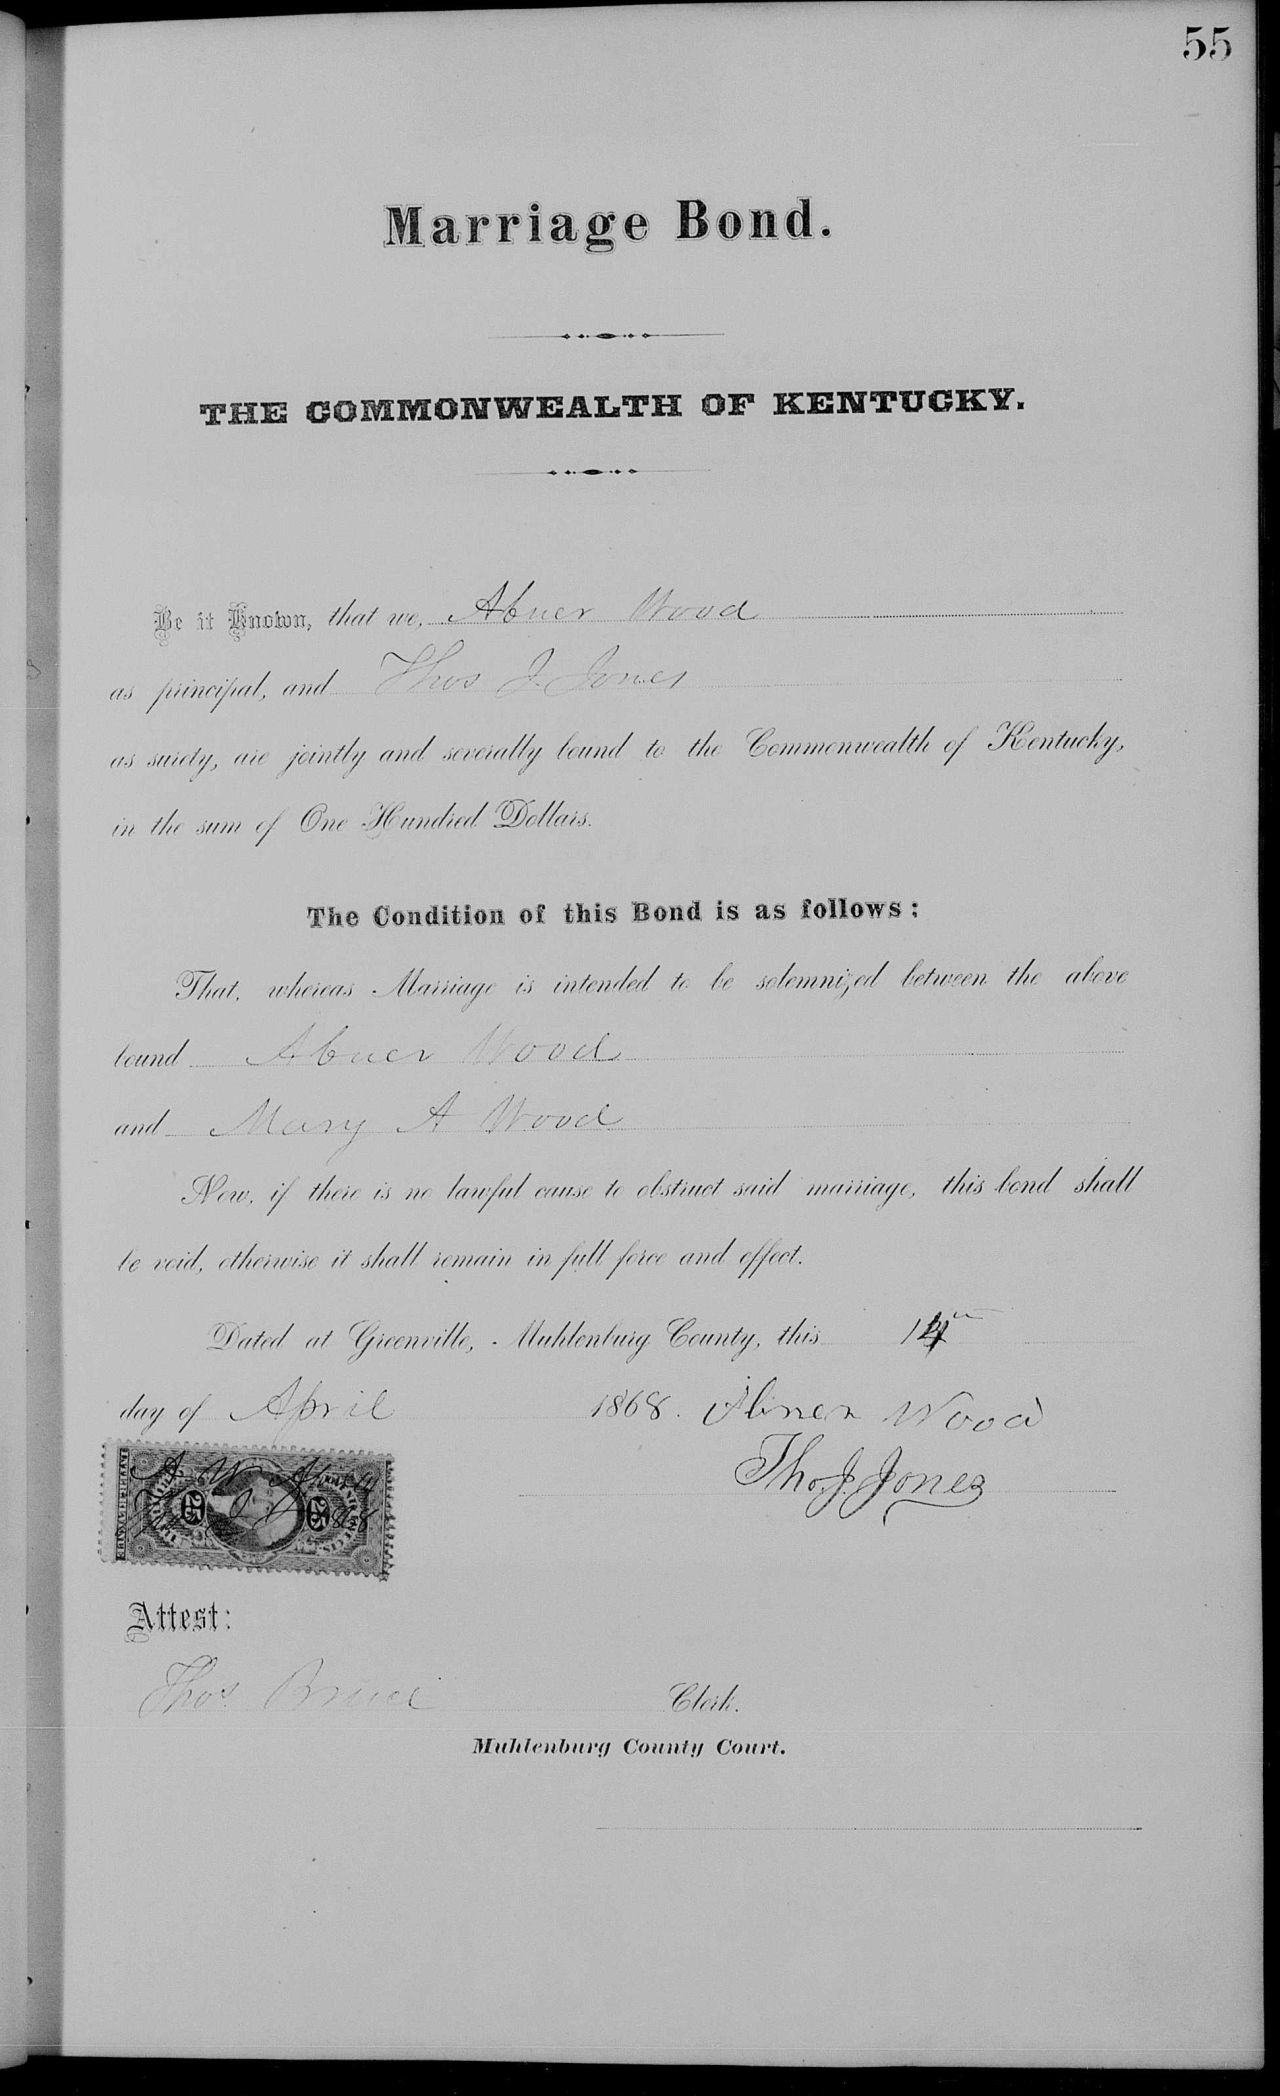 55
Marriage Bond.
THE COMMONWEALTH OF KENTUCKY.
Be it Known, that we, Abner Wood
as principal, and Thos J. Jones
as surety, are jointly and severally bound to the Commonwealth of Kentucky,
in the sum of One Hundred Dollars.
The Condition of this Bond is as follows:
That, whereas Marriage is intended to be solemnized between the above
bound Abner Wood
and Mary A Wood
Now, if there is no lawful cause to obstruct said marriage, this bond shall
be void, otherwise it shall remain in full force and effect.
Dated at Greenville, Muhlenburg County, this 14th
day of April 1868. Abner Wood
Tho. J. Jones
25 25
Attest:
Thos. Bruce Clerk.
Muhlenburg County Court.